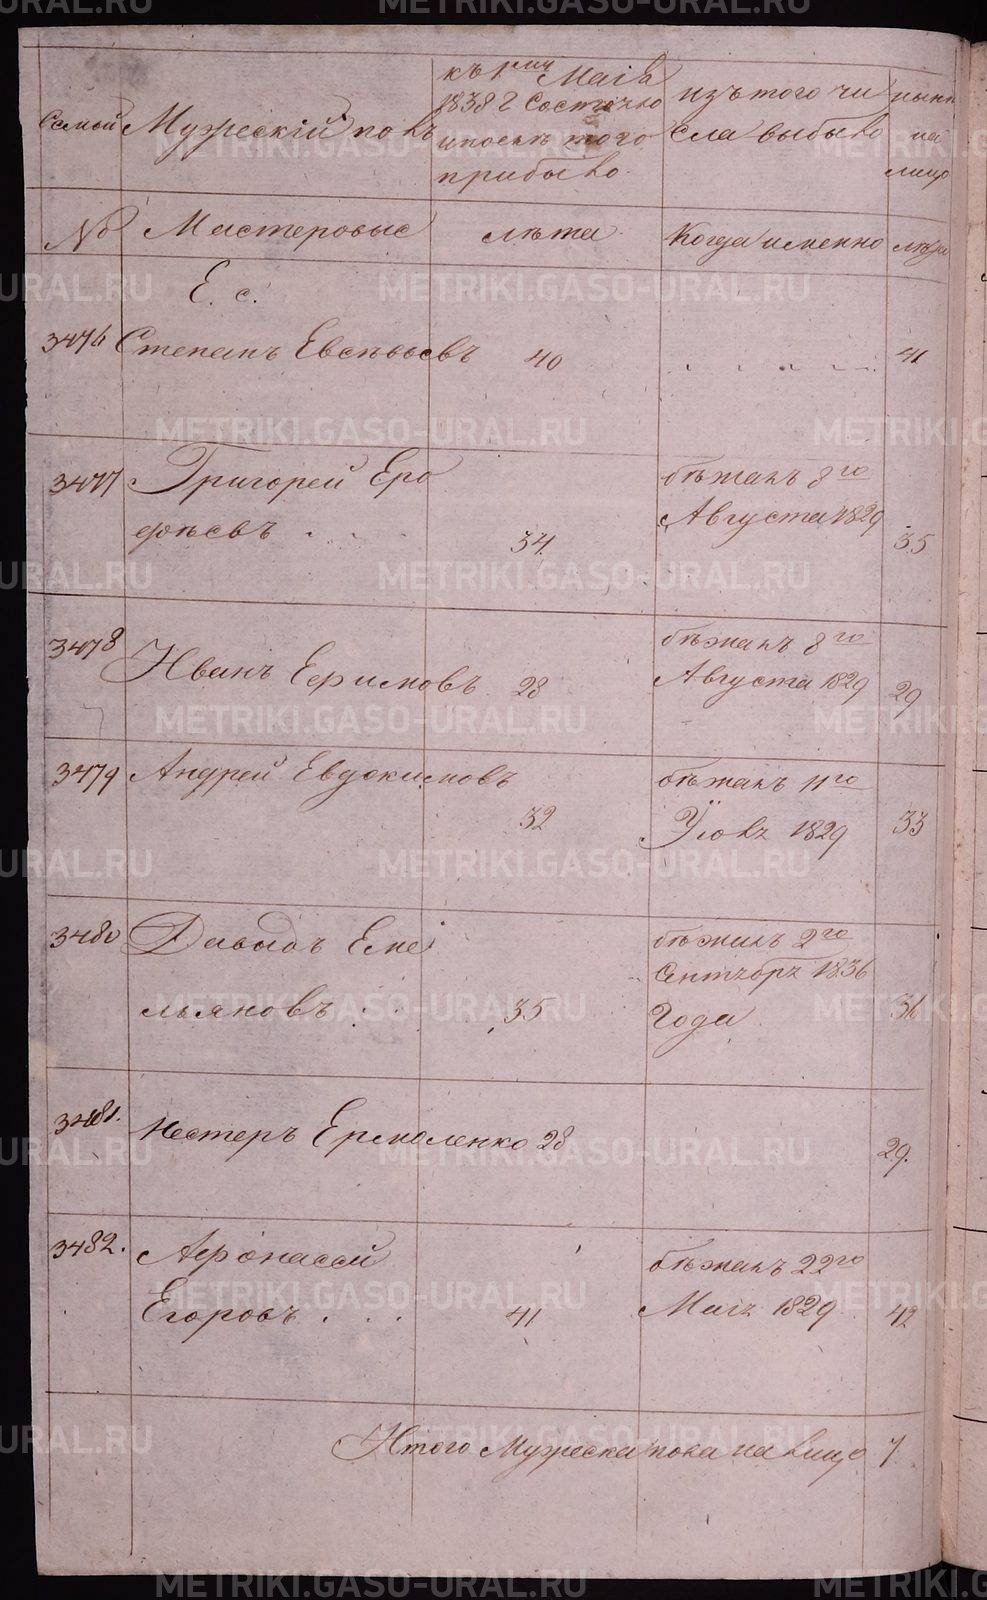 Семьи Мужескій полъ
къ 1му Маія
1838 г состояло
и после того
прибыло
изъ того чи
сла выбыло
ныне
на
лицо
№ Мастеровые лѣта Когда именно лѣта
Е. с.
3476 Степанъ Евсѣвьевъ 40 . . . . . 41
3477 Григорей Еро
фѣевъ . . . 34
бѣжалъ 8го
Августа 1829
35
3478 Иванъ Ефимовъ 28
бѣжалъ 8го
Августа 1829
29
3479 Андрей Евдокимовъ
32
бѣжалъ 11го
1829
33
3480 Давыдъ Еме
льяновъ . . 35
бѣжалъ 2го
Сентября 1836
Года
36
3481. Нестеръ Ермоленко 28 29.
3482. Афонасей
Егоровъ . . . 41
бѣжалъ 22го
Маія 1829
42
Итого Мужеска пола на лицо 7
METRIKI.GASO-URAL.RU